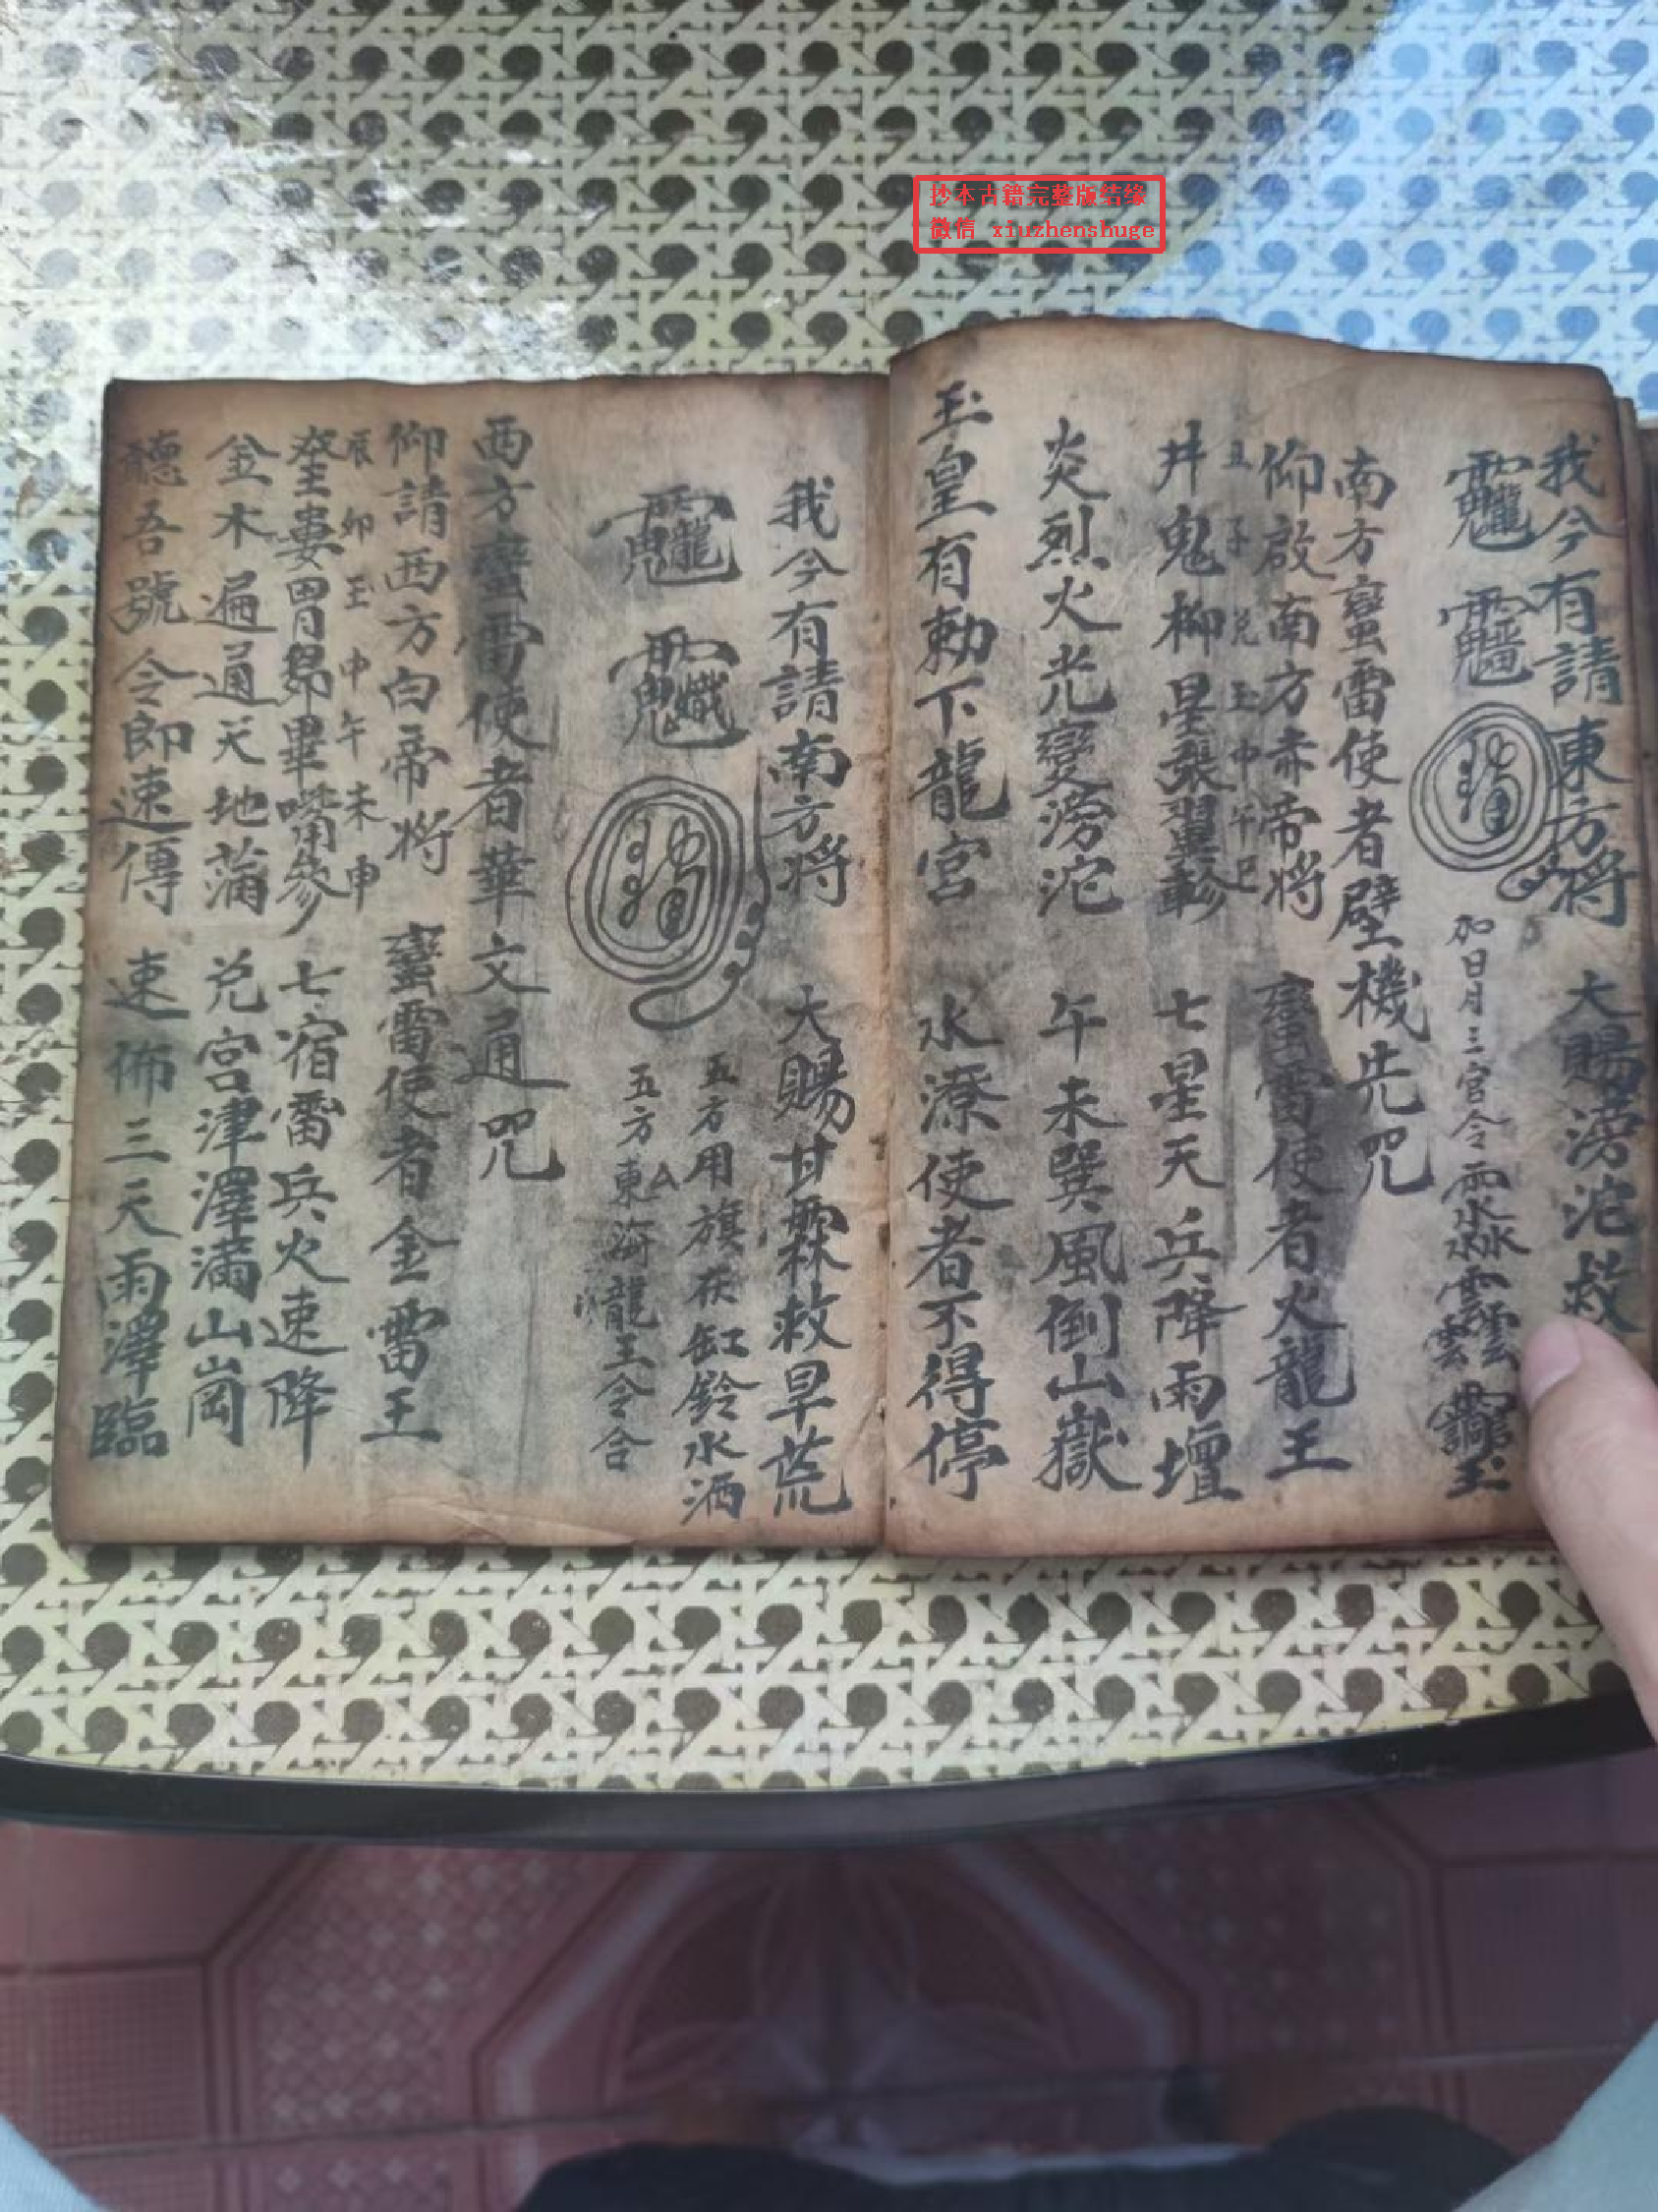 抄本古籍完整版结缘
微信 xiuzhenshuge
我今有請東方将 大賜滂沱救
加日月三官令
南方蠻雷使者壁機先咒
仰啟南方赤帝将 蠻雷使者火龍王
丑子兌玉中午巳
井鬼柳星張翼軫 七星天兵降雨壇
炎烈火光變滂沱 午未巽風倒山嶽
玉皇有勅下龍宮 水潦使者不得停
我今有請南方将 大賜甘霖救旱荒
五方用旗 缸鈴水洒
五方東海龍王令合
西方蠻雷使者華文通咒
仰請西方白帝将 蠻雷使者金雷王
辰卯玉中午未申
奎婁胃昴畢嘴參 七宿雷兵火速降
金木遍通天地蒲 兌宮津澤滿山崗
聽吾號令郎速傳 速佈三天雨澤臨